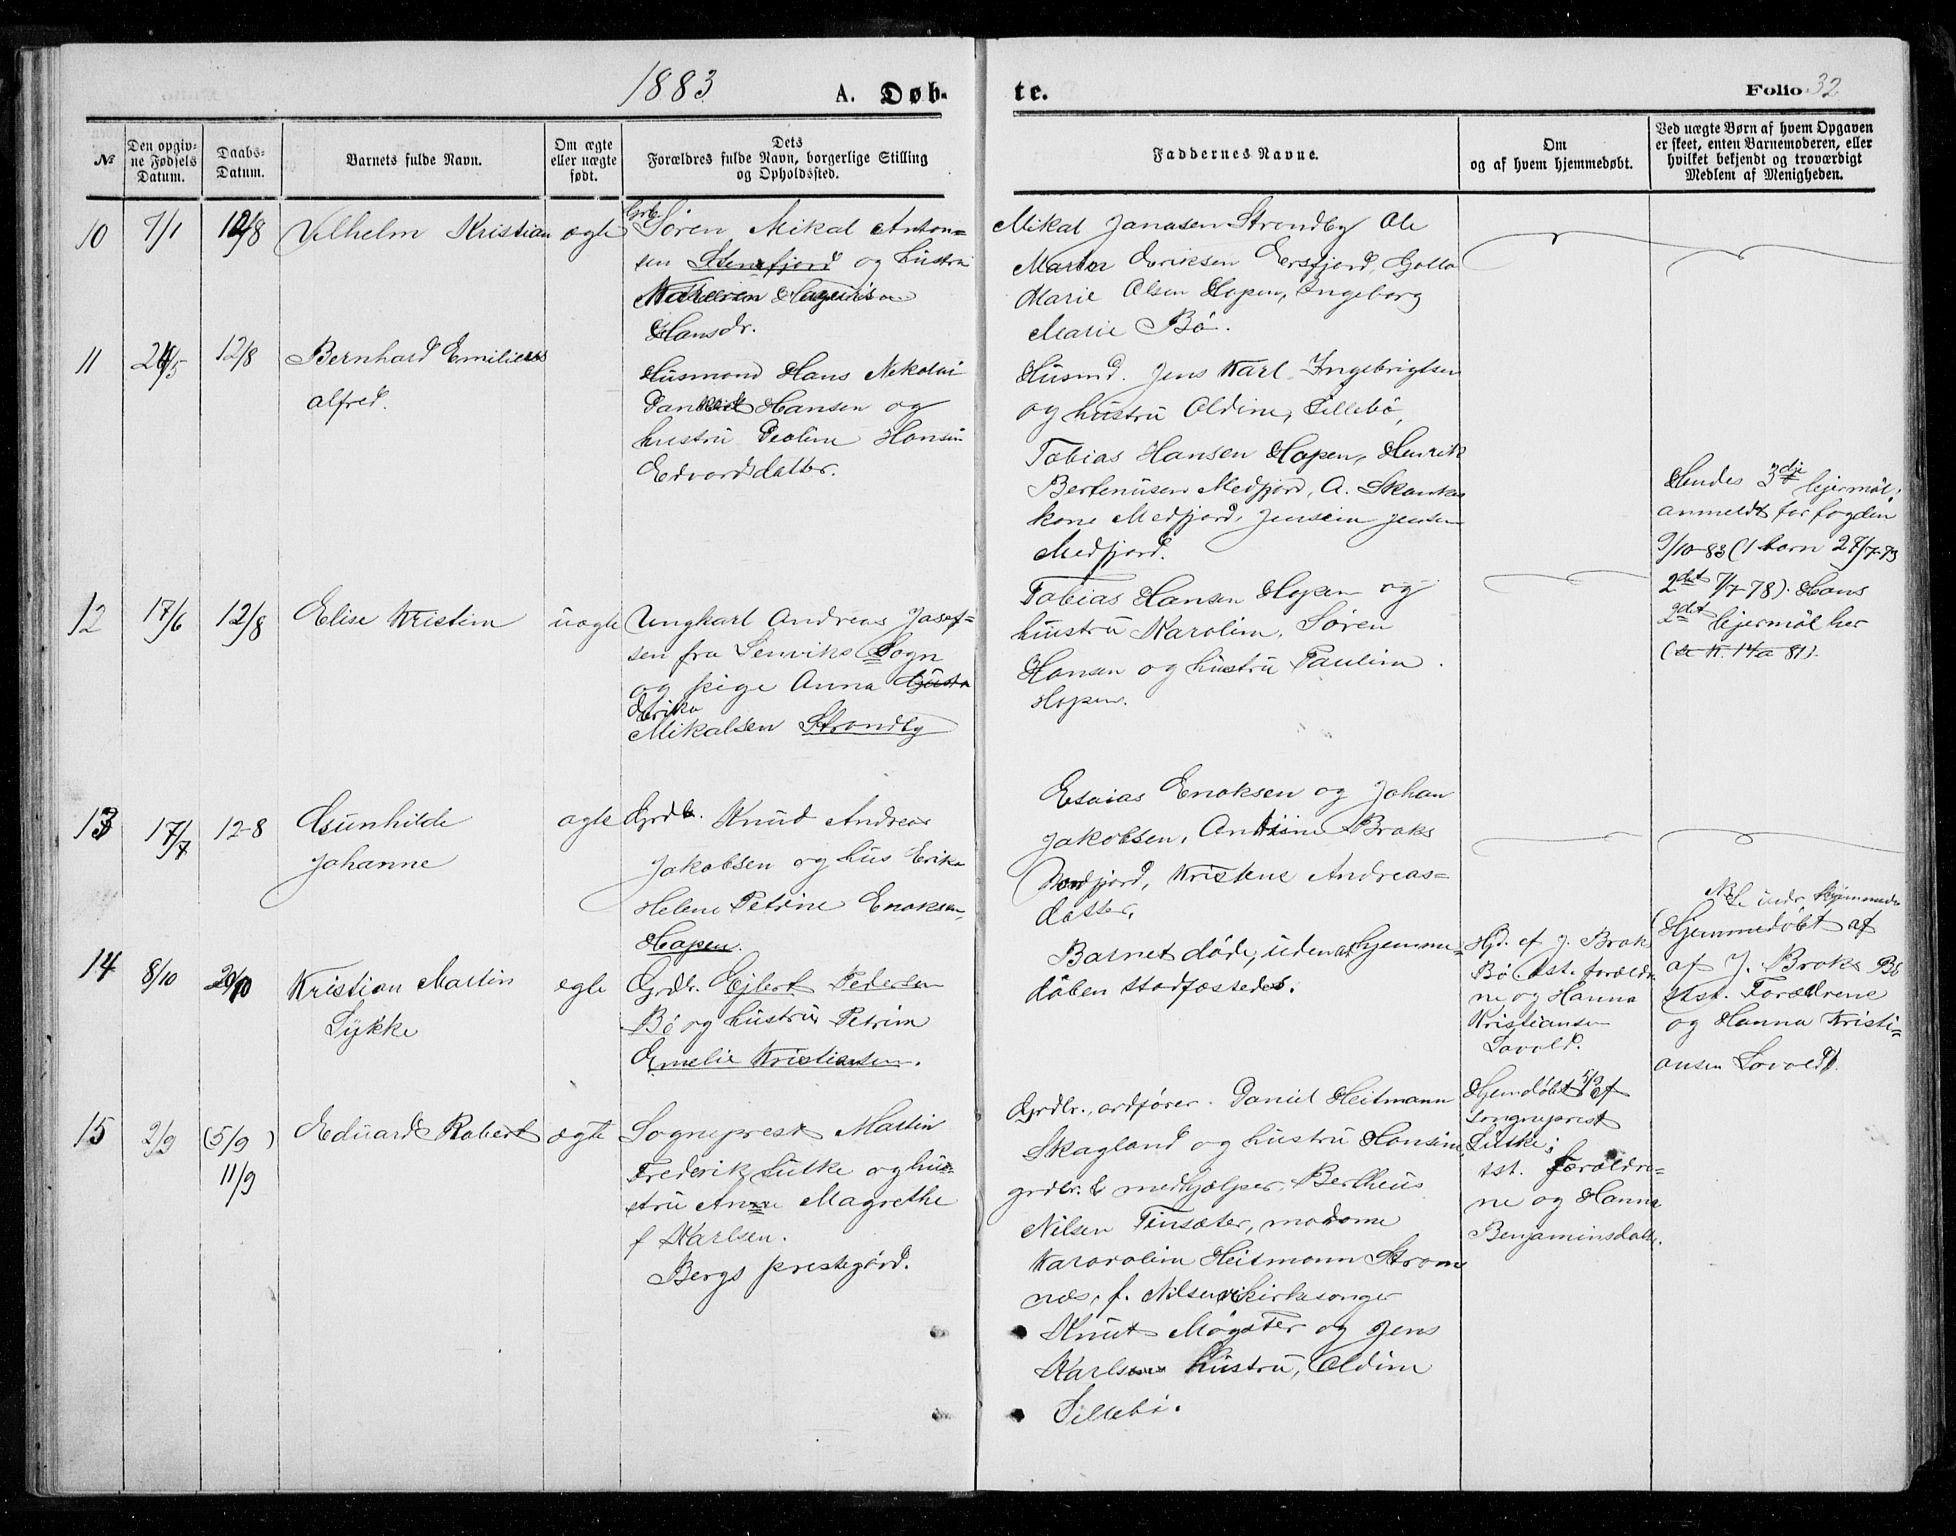 1883
A. Døb-
te.
Folio 32
№
Den opgiv-
ne Fødsels
Datum.
Daabs-
Datum.
Barnets fulde Navn.
Om ægte
eller uægte
født.
Dets
Forældres fulde Navn, borgerlige Stilling
og Opholdssted.
Faddernes Navne.
Om
og af hvem hjemmedøbt.
Ved uægte Børn af hvem Opgaven
er skeet, enten Barnemoderen, eller
hvilket bekjendt og troværdigt
Medlem af Menigheden.
10
7/1
12/8
Vilhelm Kristian
ægte
Søren Mikal Anton=
sen Steinfjord og hustru
Hansdr.
Mikal Janasen Strondby Ole
Martin Eriksen Ersfjord,
Marie Olsen Hopen, Ingeborg
Marie Bö.
11
24/5
12/8
Bernhard Emilius
alfred.
Husmand Hans Nikolai
Hansen og
hustru Peoline Hansin
Edvardsdatter.
Husmd. Jens Karl Ingebrigtsen
og hustru Oldine, Sillebö,
Tobias Hansen Hopen, Henrik
Bertenusen Medfjord, A. Skanke
kone Medfjord, Jensen
Medfjord.
12
17/6
12/8
Elise Kristine
uægte
Ungkarl Andreas Josef=
sen fra Lenviks Sogn
og pige Anna
Erika
Mikalsen Strondby
Tobias Hansen Hopen og
hustru Karolina, Søren
Hansen og hustru Paulina
Hopen.
Hendes 3die lejermål;
anmeldt for fogden
9/10-83 (1 barn 27/7-73
2det 7/7-78). Hans
2det lejermål her
(se K. 14a 81).
13
17/7
12-8
Gunhilde
Johanne
ægte
Grdb. Knud Andreas
Jakobsen og hus Erika
Helene Petrine Enoksen,
Hopen.
Esaias Enoksen og Johan
Jakobsen, Broks
Kristene Andreas=
datter.
14
8/10
20/10
Kristian Martin
Lykke
egte
Grdbr. Ejlert Pedersen
Bö og hustru Petrine
Emelie Kristiansen.
Barnet døde, uden at hjemme-
dåben stadfæstedes.
Hjd. af J. Brok
Bö tst. foreldre
ne og Hanna
Kristiansen
Lovold.
Hjemmedöbt af
af J. Broks Bö
tst. Forældrene
og Hanna Kristi=
ansen Lovold.
15
2/9
(5/9)
11/9
Eduard Robert
ægte
Sogneprest Martin
Frederik Lütke og hu=
stru Anna Magrethe
f Karlsen.
Bergs prestegård.
Grdbr., ordfører. Daniel Heitmann
Skagland og hustru Hansine,
grdbr. & medhjælper Bertheus
Nilsen Finsæter, madame
Kararoline Heitmann Strom
næs, f. Nilsen, Kirkesanger
Knut Møgster og Jens
Karlsens hustru, Oldine
Sillebö.
Hjemdöbt 5/9 af
sogneprest
Lütke;
tst. foreldre-
ne og Hanna
Benjaminsdatter.